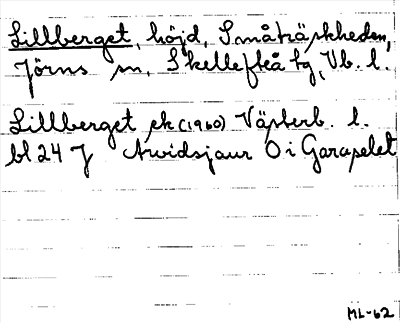 Lillberget, höjd, Småträskheden,
Jörns sn, Skellefteå tg, Vb. l.
Lillberget ek (1960) Västerb. l.
bl 24 J Arvidsjaur Ö i Garapelet
ML-62